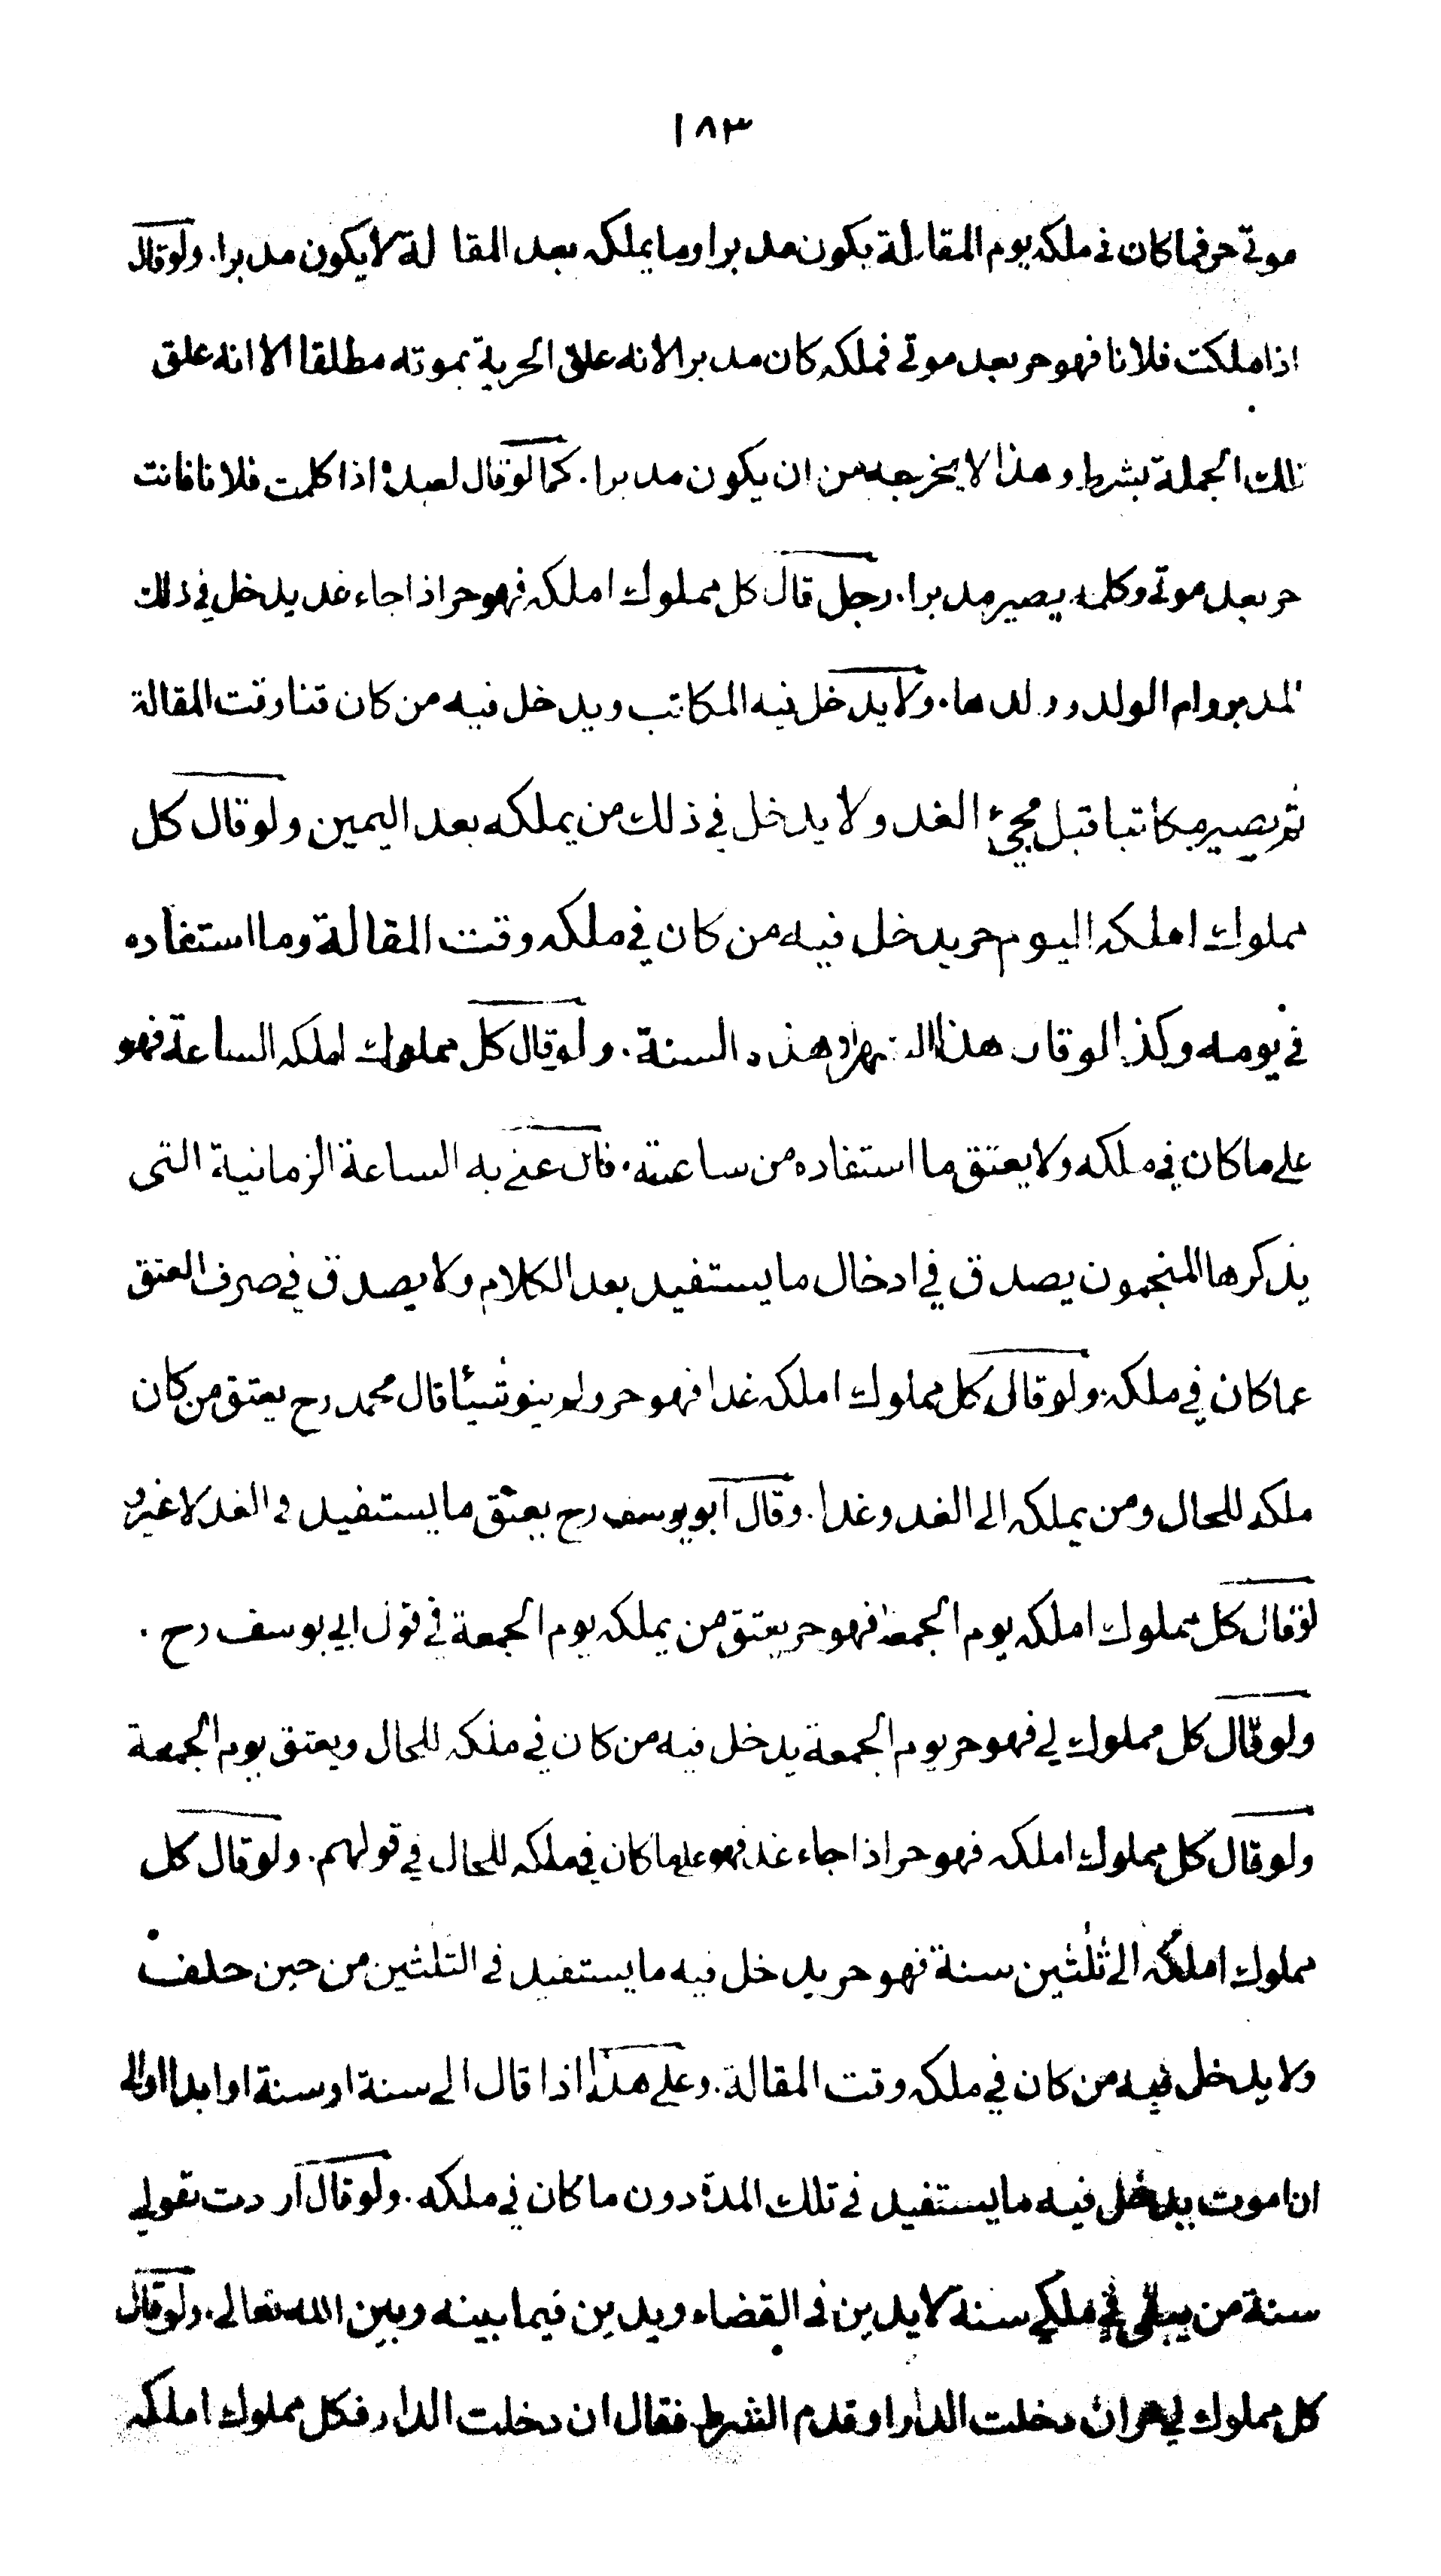 ١٨٣
موتي حر فما كان في ملكه يوم المقالة يكون مدبرا وما يملكه بعد المقالة لا يكون مدبرا. ولو قال
اذا ملكت فلانا فهو حر بعد موتي فملكه كان مدبرا لانه علق الحرية بموته مطلقا الا انه علق
تلك الجملة بشرط وهذا لا يخرجه من ان يكون مدبرا. كما لو قال لعبده اذا كلمت فلانا فانت
حر بعد موتي وكلمه يصير مدبرا. رجل قال كل مملوك املكه فهو حر اذا جاء غد يدخل في ذلك
المدبر وام الولد وولدها. ولا يدخل فيه المكاتب ويدخل فيه من كان قنا وقت المقالة
ثم يصير مكاتبا قبل مجيئ الغد ولا يدخل في ذلك من يملكه بعد اليمين ولو قال كل
مملوك املكه اليوم حر يدخل فيه من كان في ملكه وقت المقالة وما استفاده
في يومه وكذا لو قال هذا الشهر او هذه السنة. ولو قال كل مملوك املكه الساعة فهو
على ما كان في ملكه ولا يعتق ما استفاده من ساعته. فان عنى به الساعة الزمانية التى
يذكرها المنجمون يصدق في ادخال ما يستفيد بعد الكلام ولا يصدق في صرف العتق
عما كان في ملكه. ولو قال كل مملوك املكه غدا فهو حر ولم ينو شيئا قال محمد رح يعتق من كان
ملكه للحال ومن يملكه الى الغد وغدا. وقال ابو يوسف رح يعتق ما يستفيد في الغد لا غير و
لو قال كل مملوك املكه يوم الجمعة فهو حر يعتق من يملكه يوم الجمعة في قول ابي يوسف رح.
ولو قال كل مملوك لي فهو حر يوم الجمعة يدخل فيه من كان في ملكه للحال ويعتق يوم الجمعة
ولو قال كل مملوك املكه فهو حر اذا جاء غد فهو على ما كان في ملكه للحال في قولهم. ولو قال كل
مملوك املكه الى ثلثين سنة فهو حر يدخل فيه ما يستفيد في الثلثين من حين حلف
ولا يدخل فيه من كان في ملكه وقت المقالة. وعلى هذا اذا قال الى سنة او سنة او ابدا او الى
ان اموت يدخل فيه ما يستفيد في تلك المدة دون ما كان في ملكه. ولو قال اردت بقولي
سنة من يبقى في ملكي سنة لا يدين في القضاء ويدين فيما بينه وبين الله تعالى. ولو قال
كل مملوك لي حر ان دخلت الدار او قدم الشرط فقال ان دخلت الدار فكل مملوك املكه